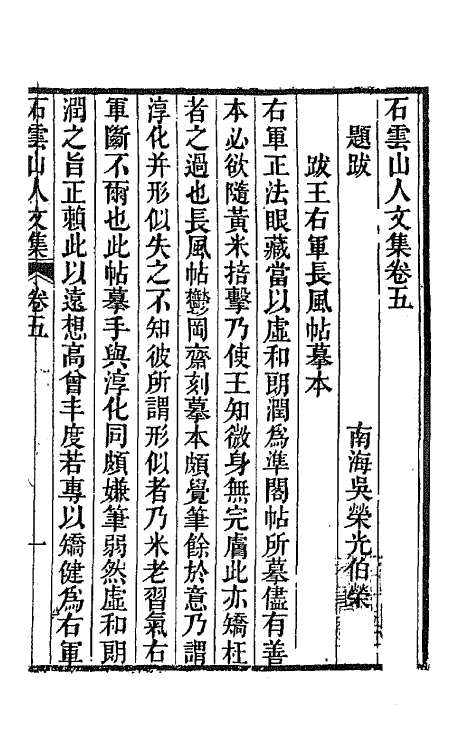 石雲山人文集卷五
題跋
南海吳榮光伯榮
跋王右軍長風帖摹本
右軍正法眼藏當以虛和朗潤為準閣帖所摹儘有善
本必欲隨黃米掊擊乃使王知微身無完膚此亦矯枉
者之過也長風帖鬱岡齋刻摹本頗覺筆餘於意乃謂
淳化并形似失之不知彼所謂形似者乃米老習氣右
軍斷不爾也此帖摹手與淳化同頗嫌筆弱然虛和朗
潤之旨正賴此以遠想高曾丰度若專以矯健為右軍
石雲山人文集
卷五
一